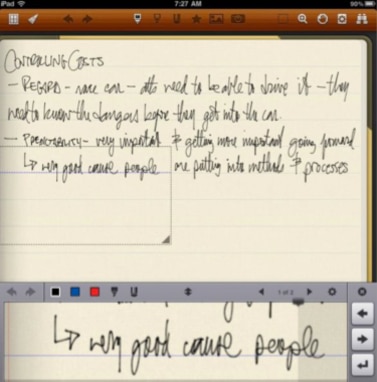 iPad
7:27 AM
90%
CONTROLLING COSTS
- REGARD - race car - attys need to be able to drive it - they
need to know the dangers before they get into the car.
- PREDICTABILITY - very important & getting more important going forward
↳ very good cause people are putting into methods & processes
1 of 2
↳ very good cause people